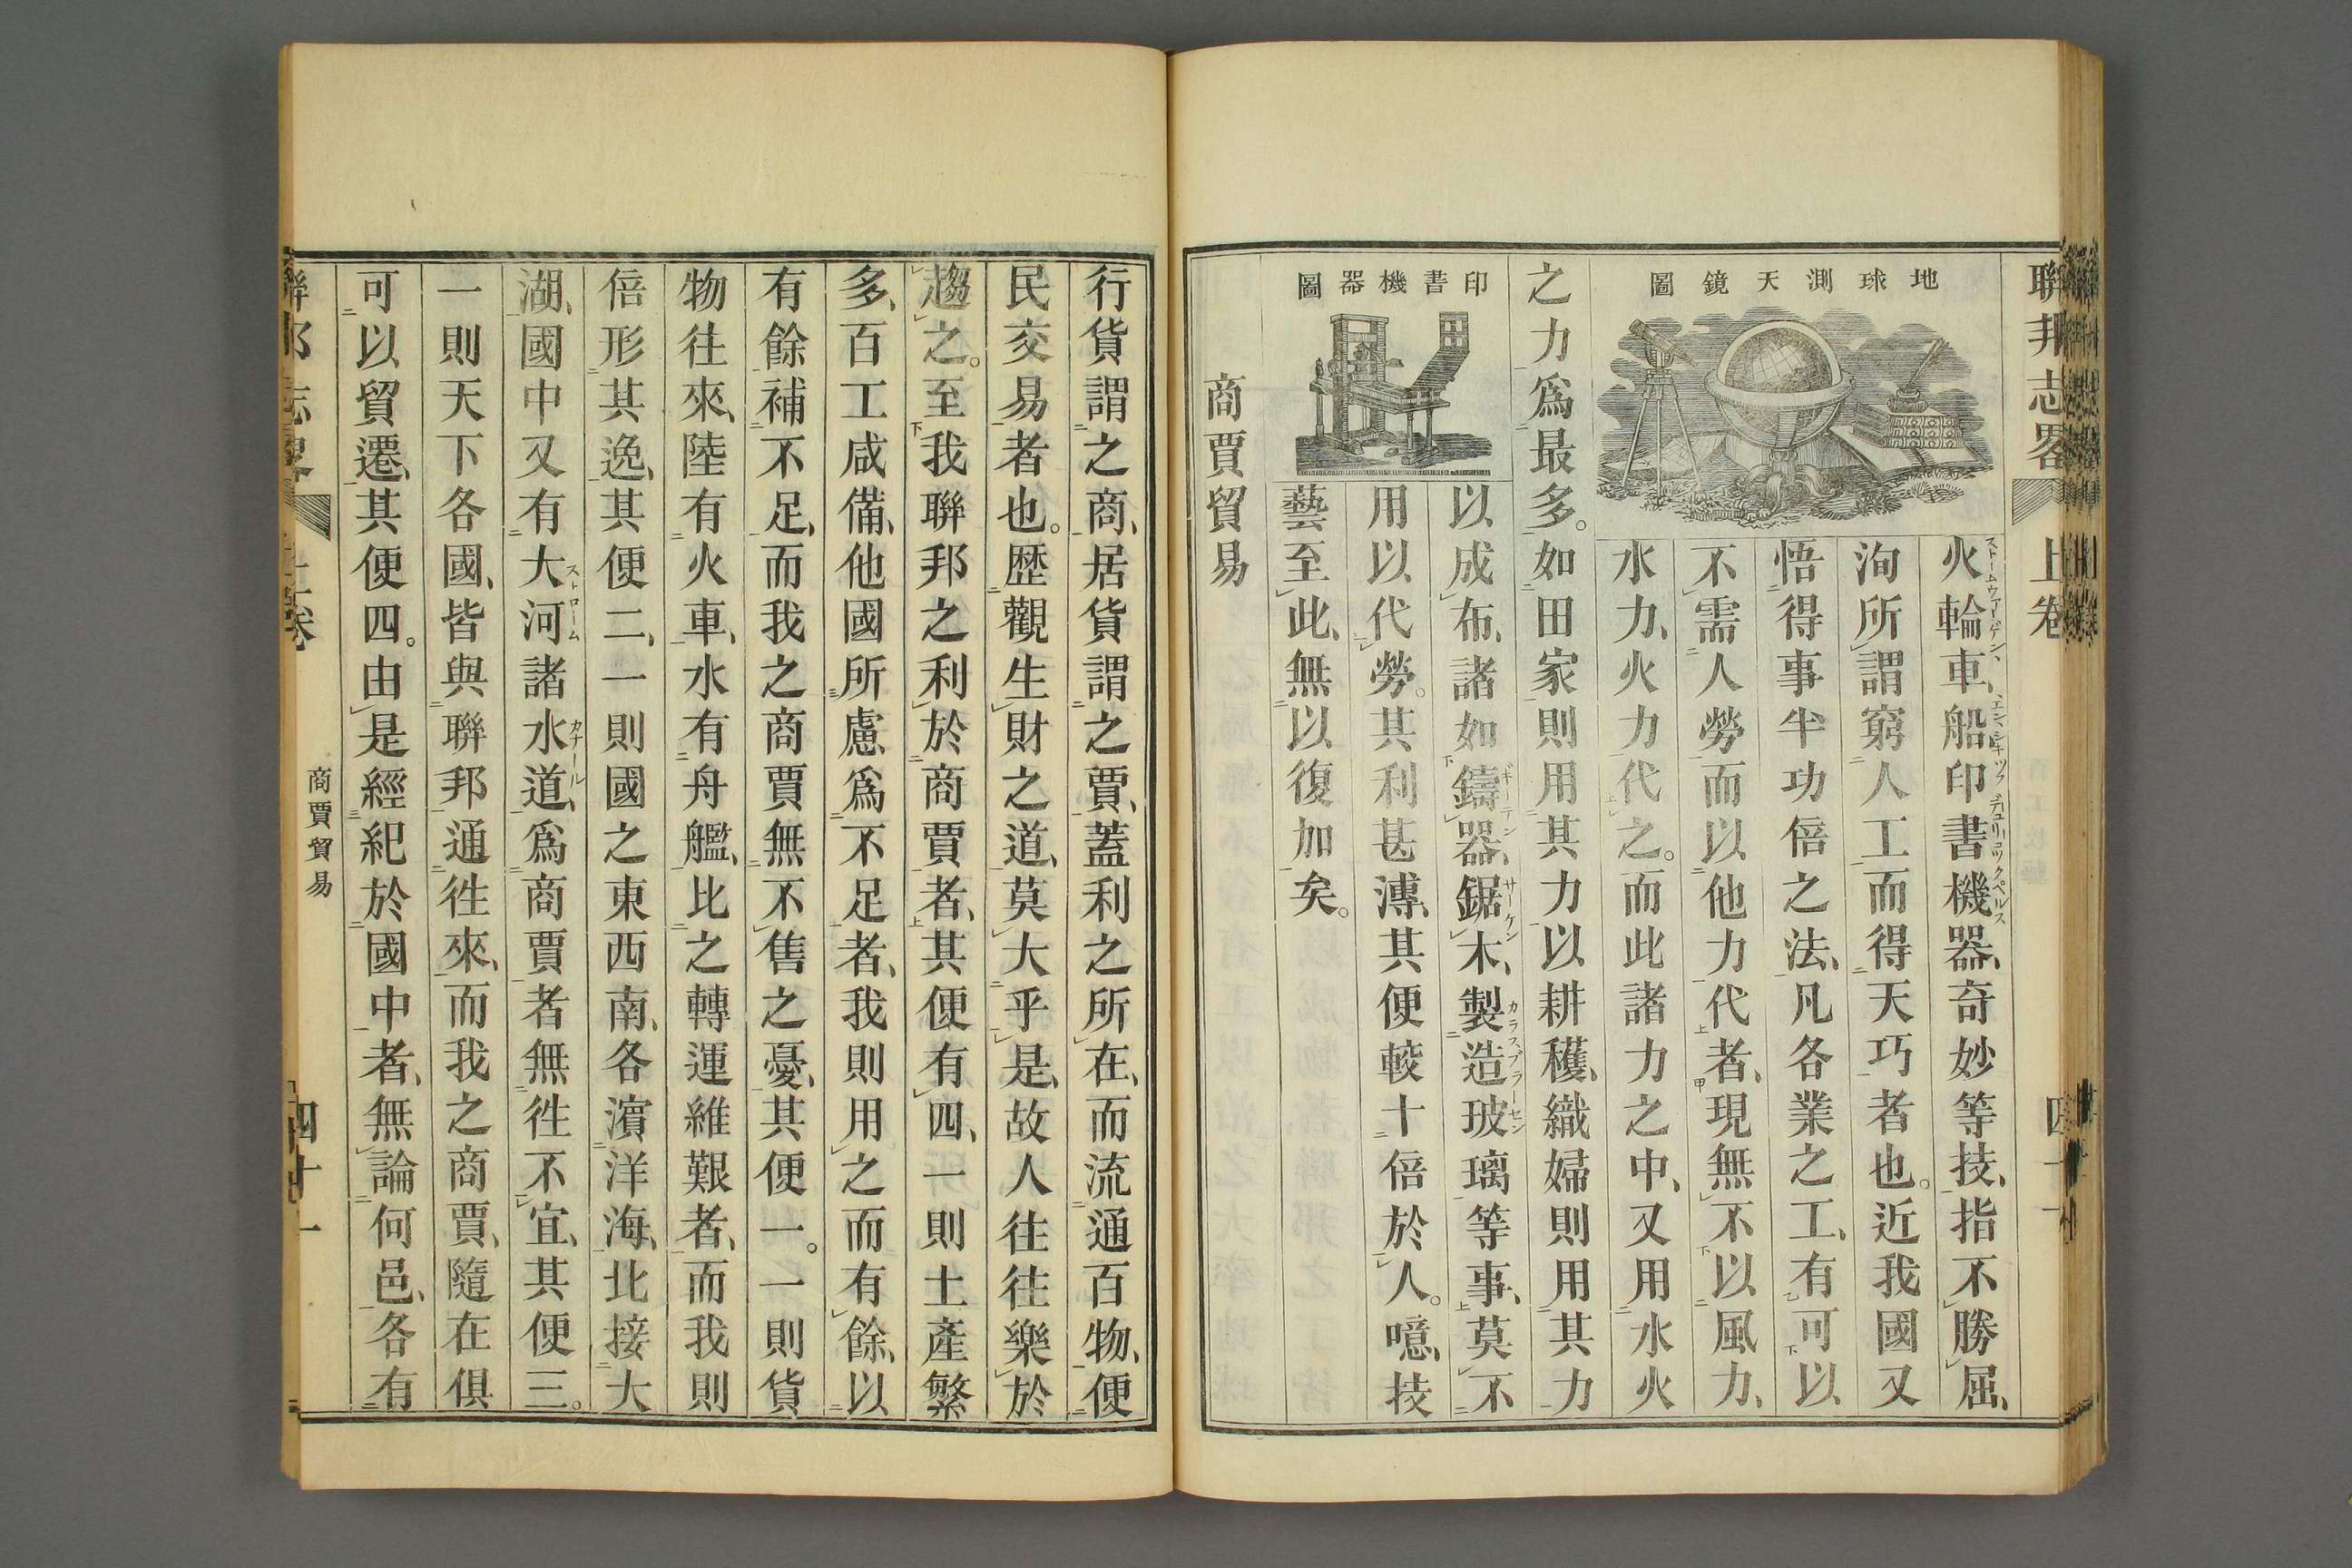 聯邦志畧
上卷
地球測天鏡圖
火輪車、船印書機器、奇妙等技、指不勝屈、
洵所謂窮人工而得天巧者也。近我國又
悟得事半功倍之法、凡各業之工、有可以
不需人勞而以他力代者、現無不以風力、
水力、火力代之。而此諸力之中、又用水火
之力爲最多。如田家則用其力以耕穫、織婦則用其力
印書機器圖
以成布、諸如鑄器、鋸木、製造玻璃等事、莫不
用以代勞。其利甚溥、其便較十倍於人。噫、技
藝至此、無以復加矣。
商賈貿易
行貨謂之商、居貨謂之賈、蓋利之所在、而流通百物、便
民交易者也。歷觀生財之道、莫大乎是、故人往往樂於
趨之。至我聯邦之利於商賈者、其便有四、一則土產繁
多、百工咸備、他國所慮爲不足者、我則用之而有餘、以
有餘補不足、而我之商賈無不售之憂、其便一。一則貨
物往來、陸有火車、水有舟艦、比之轉運維艱者、而我則
倍形其逸、其便二、一則國之東西南、各濵洋海、北接大
湖、國中又有大河諸水道、爲商賈者無徃不宜、其便三。
一則天下各國、皆與聯邦通徃來、而我之商賈、隨在俱
可以貿遷、其便四。由是經紀於國中者、無論何邑、各有
商賈貿易
四十一